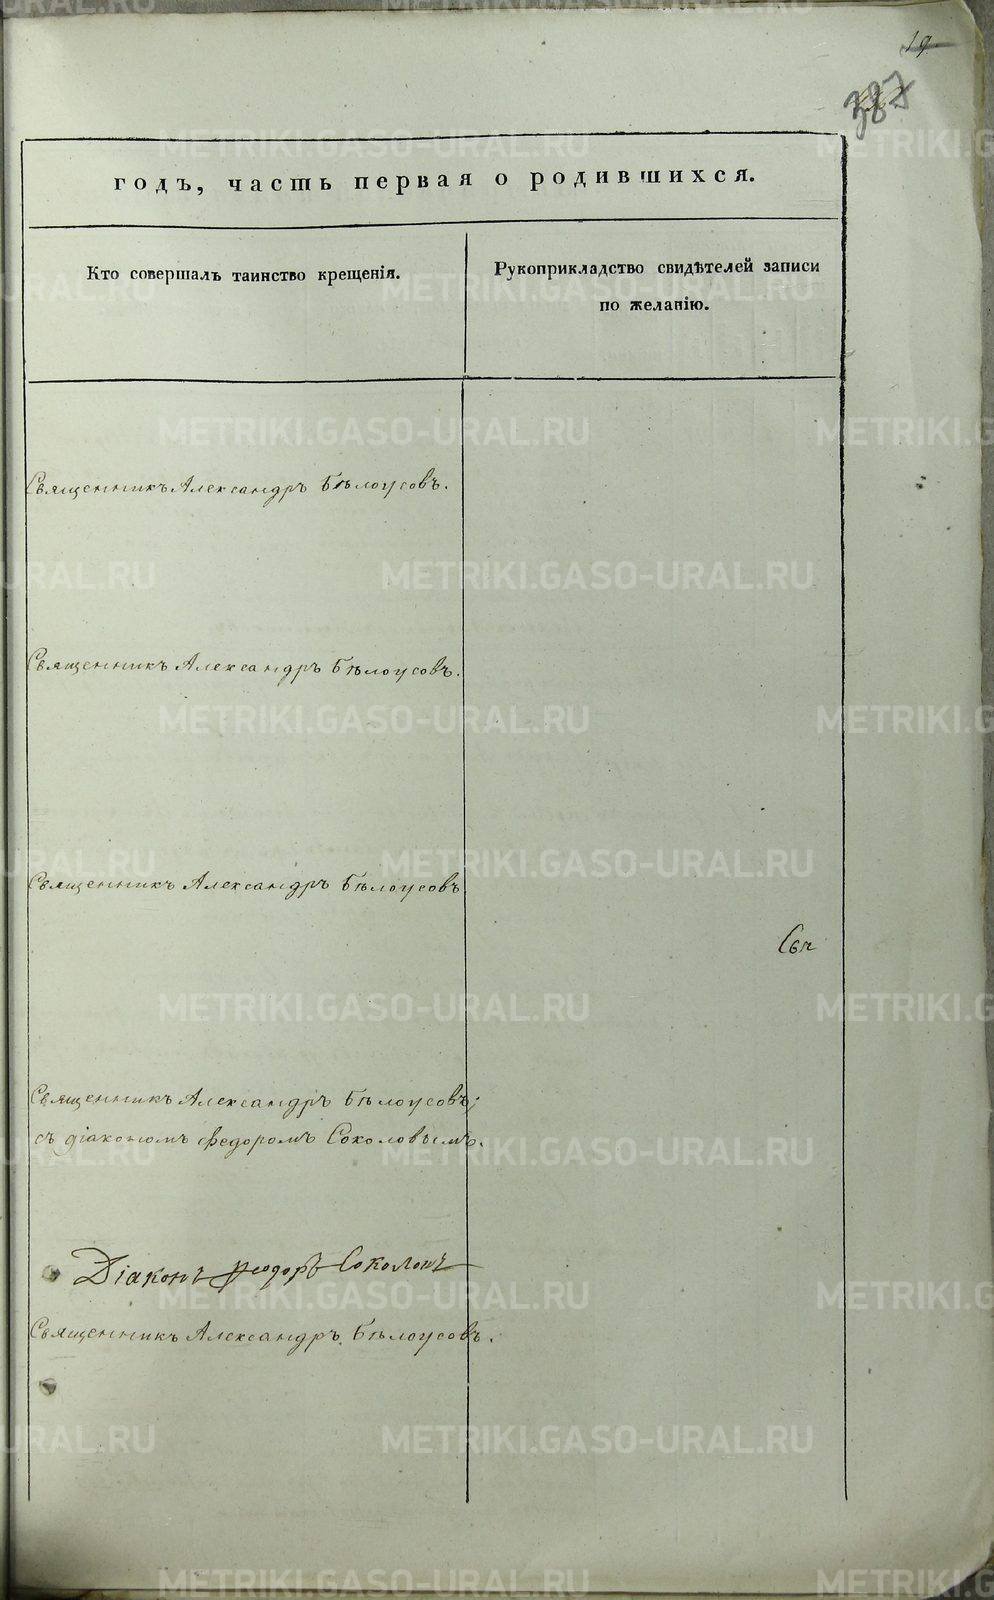 19
387
годъ, часть первая о родившихся.
Кто совершалъ таинство крещенія.
Рукоприкладство свидѣтелей записи
по желанію.
Священникъ Александръ Бѣлоусовъ.
Священникъ Александръ Бѣлоусовъ.
Священникъ Александръ Бѣлоусовъ
Священникъ Александръ Бѣлоусовъ;
съ діакономъ Федоромъ Соколовымъ.
Діаконъ Феодоръ Соколовъ
Священникъ Александръ Бѣлоусовъ.
METRIKI.GASO-URAL.RU